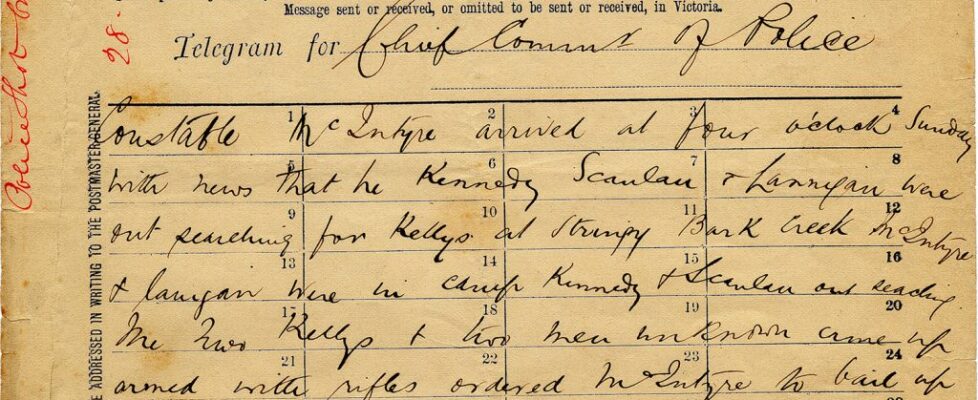 Message sent or received, or omitted to be sent or received, in Victoria.
28.
Telegram for Chief Commr of Police
ADDRESSED IN WRITING TO THE POSTMASTER-GENERAL.
1 2 3 4
Constable McIntyre arrived at four o'clock Sunday
5 6 7 8
with news that he Kennedy Scanlan & Lannigan were
9 10 11 12
out searching for Kellys at Stringy Bark Creek McIntyre
13 14 15 16
& lanigan were in camp Kennedy & Scanlan out seaching
17 18 19 20
The Two Kellys & two men unknown came up
21 22 23 24
armed with rifles ordered McIntyre to bail up